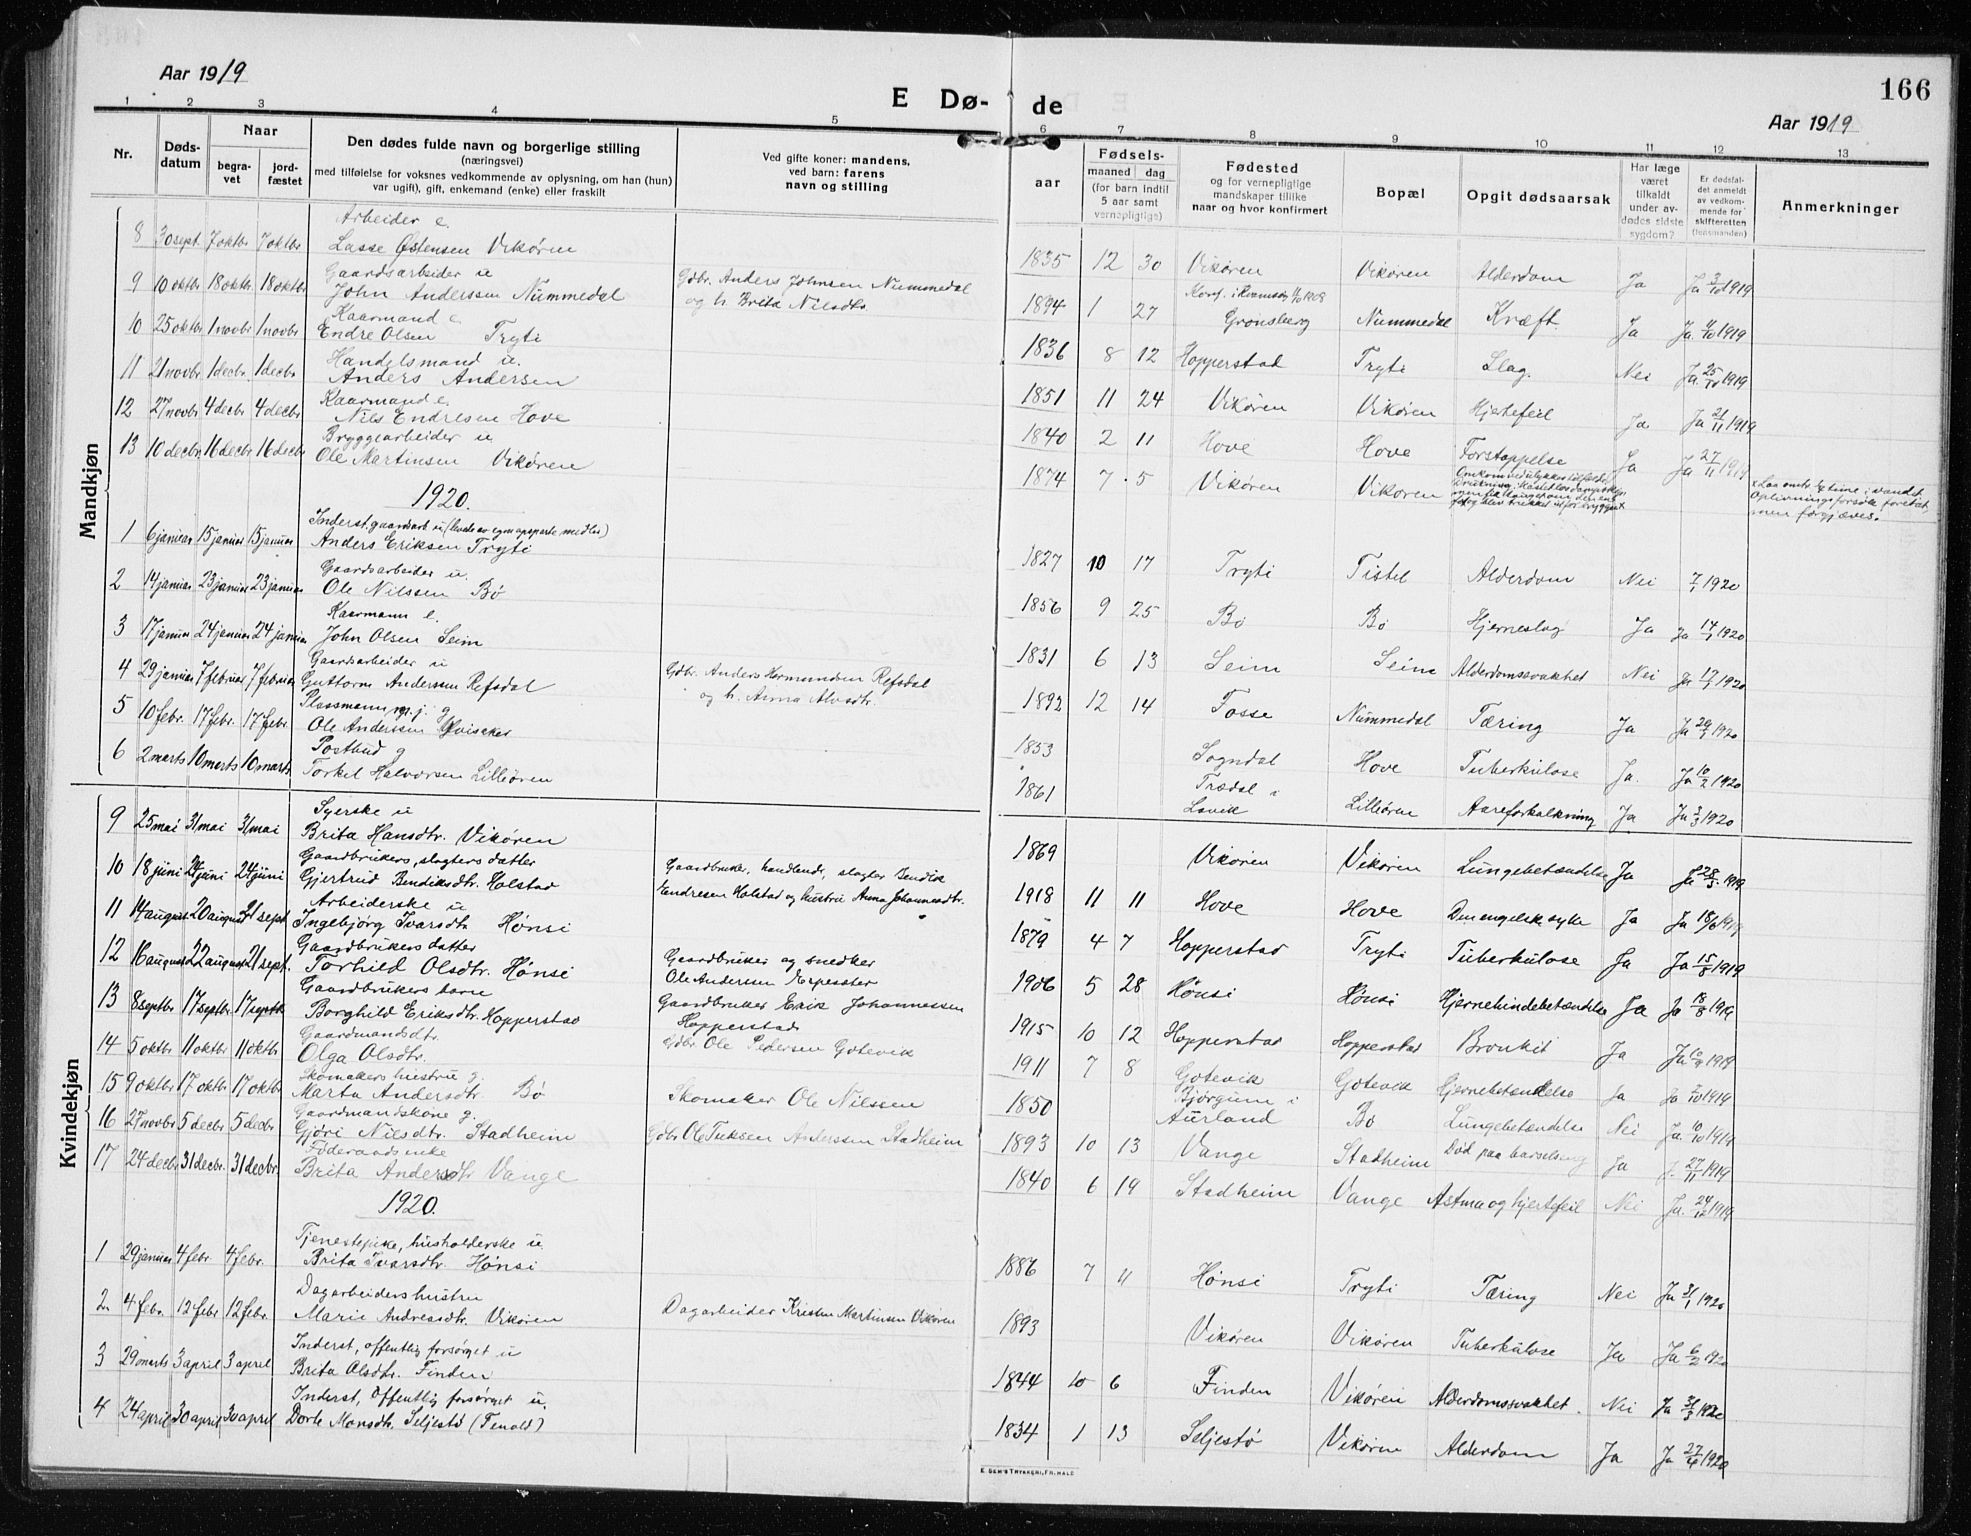 Aar 1919
E Dø- de
166
Aar 1919
1 2 3 4 5 6 7 8 9 10 11 12 13
Nr.
Døds-datum
Naar
begra-vet
jord-fæstet
Den dødes fulde navn og borgerlige stilling
(næringsvei)
med tilføielse for voksnes vedkommende av oplysning, om han (hun)
var ugift), gift, enkemand (enke) eller fraskilt
Ved gifte koner: mandens,
ved barn: farens
navn og stilling
aar
Fødsels-
maaned dag
(for barn indtil
5 aar samt
vernepligtige)
Fødested
og for vernepligtige
mandskaper tillike
naar og hvor konfirmert
Bopæl
Opgit dødsaarsak
Har læge
været
tilkaldt
under av-
dødes sidste
sygdom?
Er dødsfal-
det anmeldt
av vedkom-
mende for
skifteretten
(lensmanden)
Anmerkninger
Mandkjøn
8 30 sept. 7 oktbr 7 oktbr Arbeider e.
Lasse Østensen Vikøren 1835 12 30 Vikøren Vikøren Alderdom Ja Ja 3/10 1919
9 10 oktbr 18 oktbr 18 oktbr Gaardsarbeider u
John Anderssen Nummedal Gdbr. Anders Johnsen Nummedal
og h. Brita Nilsdtr. 1894 1 27 Grønsberg Nummedal Kræft Ja Ja 1919
10 25 oktbr 1 novbr 1 novbr Kaarmand e.
Endre Olsen Tryti 1836 8 12 Hopperstad Tryti Slag. Nei Ja 25/10 1919
11 21 novbr 1 decbr. 1 decbr Handelsmand u.
Anders Andersen 1851 11 24 Vikøren Vikøren Hjertefeil Ja Ja 21/11 1919
12 27 novbr 4 decbr 4 decbr Kaarmand e.
Nils Endresen Hove 1840 2 11 Hove Hove Forstoppelse Ja Ja 27/11 1919
13 10 decbr 16 decbr 16 decbr Bryggearbeider u
Ole Martinsen Vikøren 1874 7 5 Vikøren Vikøren Omkom ved ulykkestilfælde
Drukning.
x Laa omtr. 1/2 time i vandet
Oplivningsforsøk foretat,
men forgjæves.
1920.
1 6 januar 15 januar 15 januar Inderst, gaardsarb. u (levde av egne opsparte midler)
Anders Eriksen Tryti 1827 10 17 Tryti Tistel Alderdom Nei 7/1 1920
2 14 januar 23 januar 23 januar Gaardsarbeider u.
Ole Nilssen Bø 1856 9 25 Bø Bø Hjerneslag Ja Ja 14/1 1920
3 17 januar 24 januar 24 januar Kaarmann e.
John Olsen Seim 1831 6 13 Seim Seim Alderdomssvakhet Nei Ja 17/1 1920
4 29 januar 7 februar 7 februar Gaardsarbeider u
Guttorm Anderssen Refsdal Gdbr. Anders Hermundsen Refsdal
og h. Anna Alvsdtr. 1892 12 14 Fosse Nummedal Tæring Ja Ja 29/1 1920
5 10 febr. 17 febr. 17 febr. Plassmann m.j. g
Ole Anderssen Kviseker 1853 Sogndal Hove Tuberkulose Ja. Ja 10/2 1920
6 2 marts 10 marts 10 marts Postbud g
Torkel Halvorsen Lilliøren 1861 Trædal i
Lavik Lilliøren Aareforkalkning Ja Ja 2/3 1920
Kvindekjøn
9 25 mai 31 mai 31 mai Syerske u
Brita Hansdtr. Vikøren 1869 Vikøren Vikøren Lungebetændelse Ja Ja 28/5 1919
10 18 juni 24 juni 24 juni Gaardbrukers, slagters datter
Gjertrud Bendiksdtr. Holstad Gaardbruker, handlende, slagter Bendik
Endresen Holstad og hustru Anna Johannesdtr. 1918 11 11 Hove Hove Den engelske syke Ja Ja 18/6 1919
11 14 august 20 august 21 sept. Arbeiderske u
Ingebjørg Ivarsdtr Hønsi 1879 4 7 Hopperstad Tryti Tuberkulose Ja Ja 15/8 1919
12 16 august 22 august 21 sept. Gaardbrukers datter
Torhild Olsdtr. Hønsi Gaardbruker og snedker
Ole Andersen 1906 5 28 Hønsi Hønsi Hjernehindebetændelse Ja Ja 18/8 1919
13 8 septbr 17 septbr 17 septbr Gaardbrukers barn
Borghild Eriksdtr. Hopperstad Gaardbruker Erik Johannessen
Hopperstad 1915 10 12 Hopperstad Hopperstad Bronkit Ja Ja 10/9 1919
14 5 oktbr 11 oktbr 11 oktbr Gaardmandsdtr.
Olga Olsdtr. Gdbr. Ole Pedersen Gotevik 1911 7 8 Gotevik Gotevik Hjernebetændelse Ja Ja 7/10 1919
15 9 oktbr 17 oktbr 17 oktbr Skomakers hustru g.
Marta Andersdtr. Bø Skomaker Ole Nilssen 1850 Bjørgum i
Aurland Bø Lungebetændelse Nei Ja. 10/10 1919
16 27 novbr 5 decbr 5 decbr Gaardmandskone g.
Gjøri Nilsdtr. Stadheim Gdbr. Ole Anderssen Stadheim 1893 10 13 Vange Stadheim Død paa barselseng Ja J. 27/11 1919
17 24 decbr 31 decbr. 31 decbr. Føderaadsenke
Brita Andersdtr Vange 1840 6 19 Stadheim Vange Astma og hjertefeil Nei Ja. 24/12 1919
1920.
1 29 januar 4 febr. 4 febr. Tjenestepike, husholderske u.
Brita Ivarsdtr. Hønsi 1886 7 11 Hønsi Tryti Tæring Nei Ja 31/1 1920
2. 4 febr. 12 febr 12 febr. Dagarbeiders hustru
Marie Andreasdtr. Vikøren Dagarbeider Kristen Martinsen Vikøren 1893 Vikøren Vikøren Tuberkulose Ja Ja 6/2 1920
3 29 marts 3 april 3 april Inderst, offentlig forsørget u
Brita Olsdtr. Finden 1844 10 6 Finden Vikøren Alderdomssvakhet. Nei Ja 31/3 1920
4 24 april 30 april 30 april Inderst, offentlig forsørget u.
Dorte Monsdtr. Seljestø (Tenold) 1834 1 13 Seljestø Vikøren Alderdom Ja Ja 27/4 1920
E. SEM'S TRYKKERI, FR.HALD